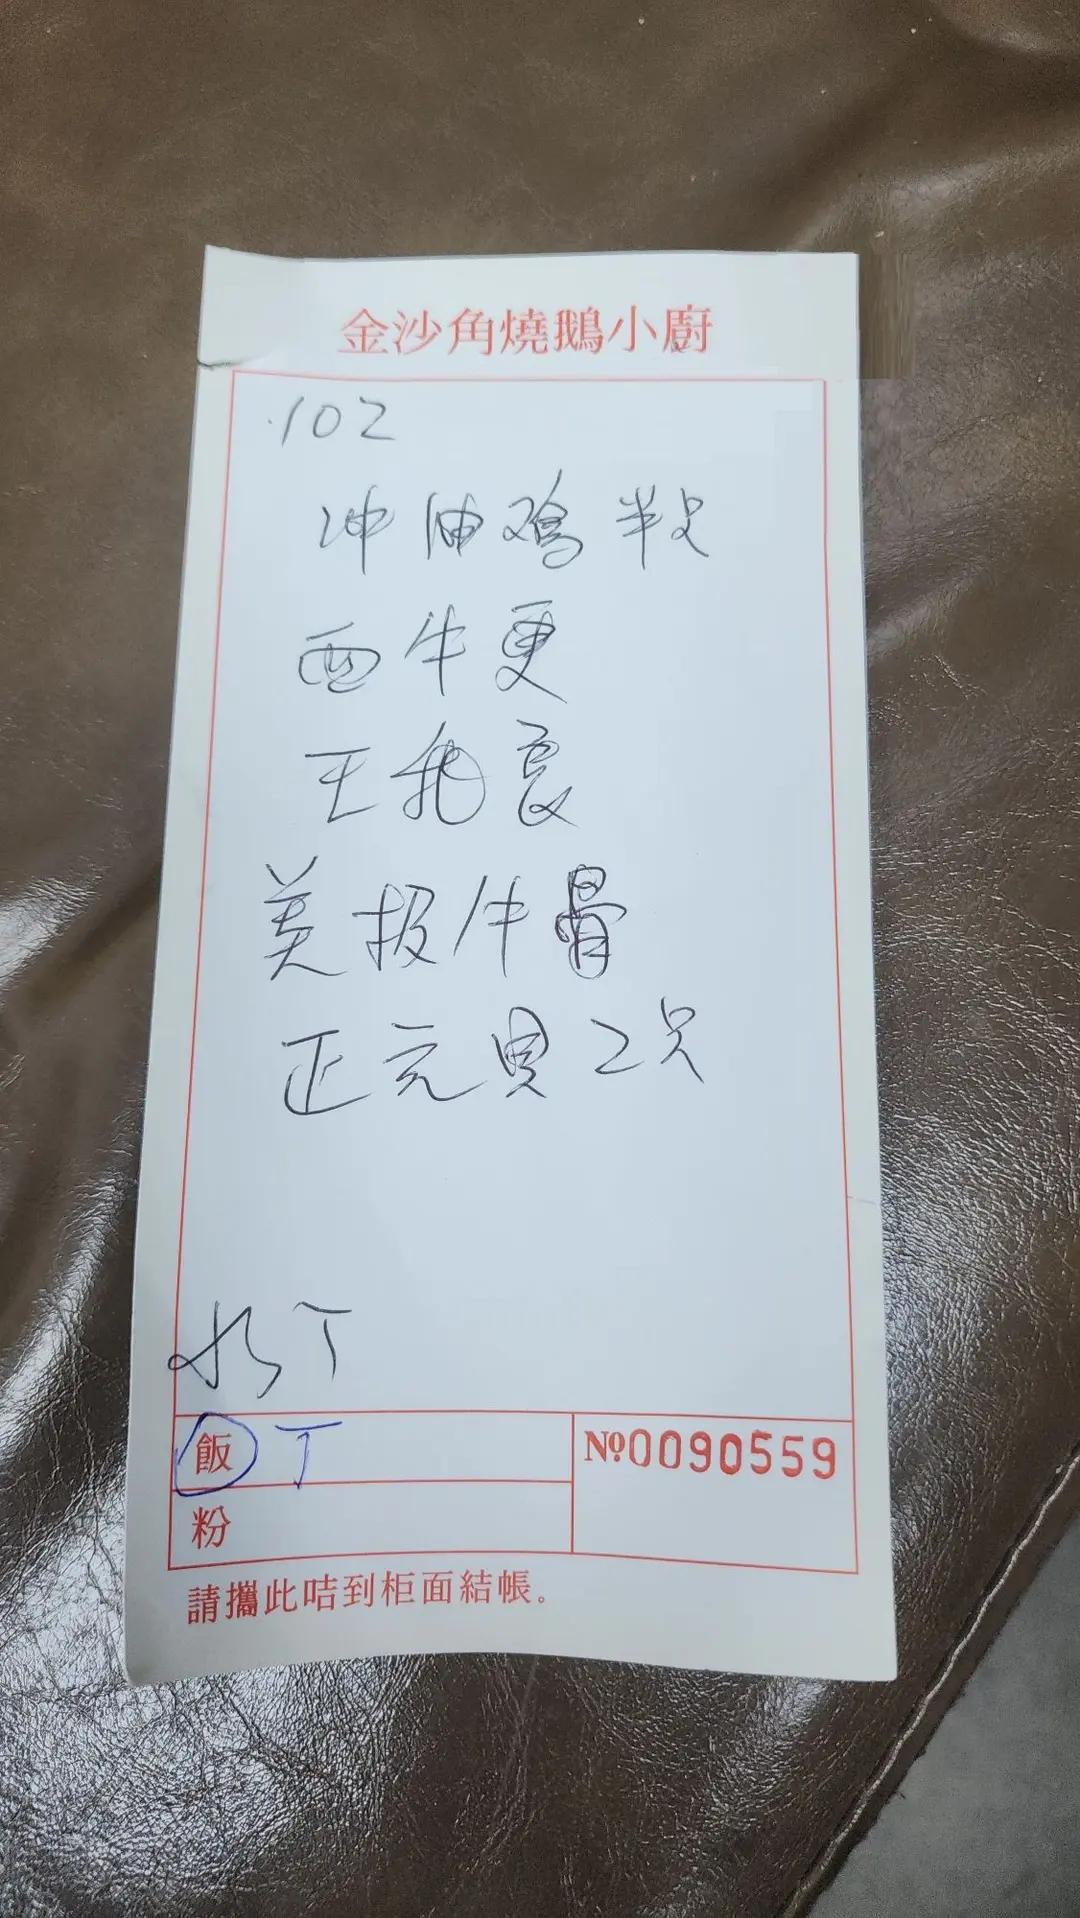 金沙角燒鵝小廚
102
冲油鸡半只
西牛更
王我良
美极牛骨
正元貝2只
水丁
飯 丁
№0090559
粉
請攜此咭到柜面結帳。